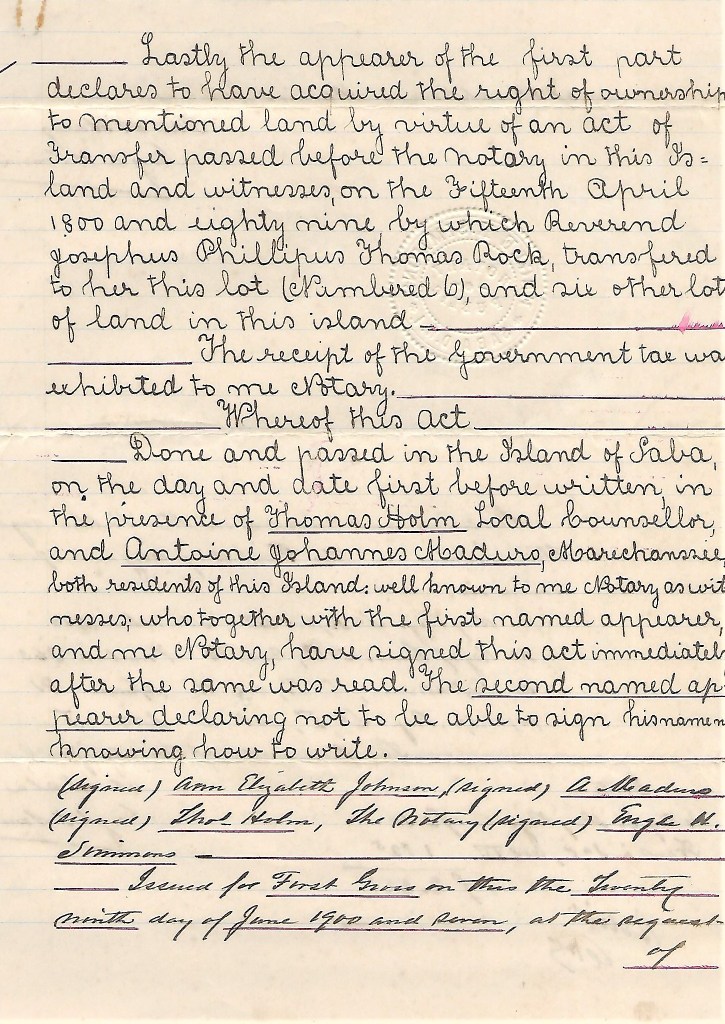 Lastly the appearer of the first part
declares to have acquired the right of ownership
to mentioned land by virtue of an act of
Transfer passed before the notary in this Is=
land and witnesses, on the Fifteenth April
1800 and eighty nine, by which Reverend
Josephus Phillipus Thomas Rock, transfered
to her this lot (Numbered 6), and six other lot
of land in this island
The receipt of the Government tax wa
exhibited to me Notary.
Whereof this Act
Done and passed in the Island of Saba,
on the day and date first before written, in
the presence of Thomas Holm Local Counsellor,
and Antoine Johannes Maduro, Marechaussée,
both residents of this Island: well known to me Notary as wit
nesses; who together with the first named appearer,
and me Notary, have signed this act immediatel
after the same was read. The second named ap-
pearer declaring not to be able to sign his name n
knowing how to write.
(signed) Ann Elizabeth Johnson, (signed) A Maduro
(signed) Thos Holm, The Notary (signed) Engle H.
Simmons
Issued for First Gross on this the Twenty
ninth day of June 1900 and seven, at the request
of